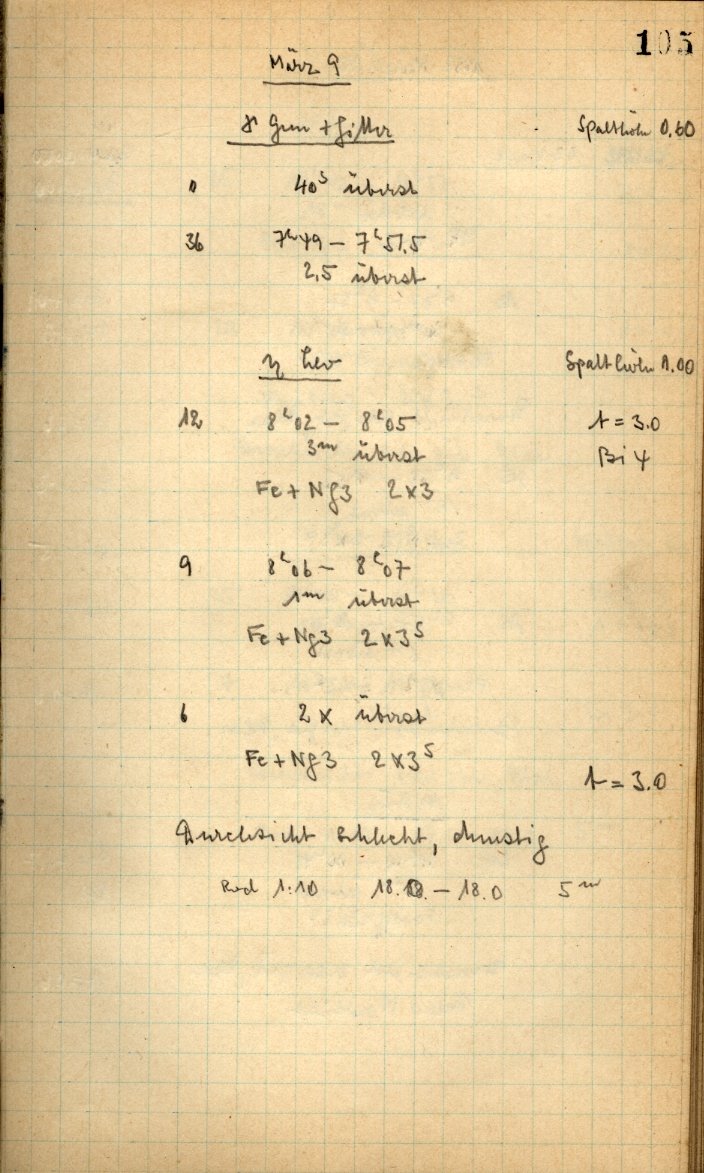 105
März 9
γ Gem + Gitter Spalthöhe 0,60
0 40ˢ überst
36 7ʰ49 – 7ʰ51,5
2,5 überst
η Leo Spalthöhe 1.00
12 8ʰ02 – 8ʰ05 t = 3.0
3ᵐ überst Bi 4
Fe + Ng3 2x3
9 8ʰ06 – 8ʰ07
1ᵐ überst
Fe + Ng3 2x3ˢ
6 2x überst
Fe + Ng3 2x3ˢ
t = 3.0
Durchsicht schlecht, dunstig
1:10 – 18.0 5ᵐ